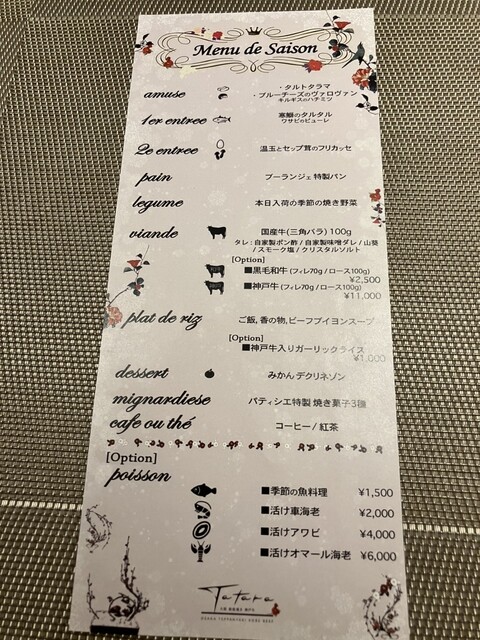 Menu de Saison
amuse
・タルトタラマ
・ブルーチーズのヴァロヴァン
キルギスのハチミツ
1er entree
寒鰤のタルタル
ワサビのピューレ
2e entree
温玉とセップ茸のフリカッセ
pain
ブーランジェ特製パン
legume
本日入荷の季節の焼き野菜
viande
国産牛(三角バラ) 100g
タレ : 自家製ポン酢 / 自家製味噌ダレ / 山葵
/ スモーク塩 / クリスタルソルト
[Option]
■黒毛和牛 (フィレ70g /ロース100g)
¥2,500
■神戸牛 (フィレ70g /ロース100g)
¥11,000
plat de riz
ご飯, 香の物, ビーフブイヨンスープ
[Option]
■神戸牛入りガーリックライス
¥1,000
dessert
みかん デクリネゾン
mignardiese
パティシエ特製 焼き菓子3種
cafe ou thé
コーヒー / 紅茶
[Option]
poisson
■季節の魚料理 ¥1,500
■活け車海老 ¥2,000
■活けアワビ ¥4,000
■活けオマール海老 ¥6,000
Tatara
OSAKA TEPPANYAKI KOBE BEEF